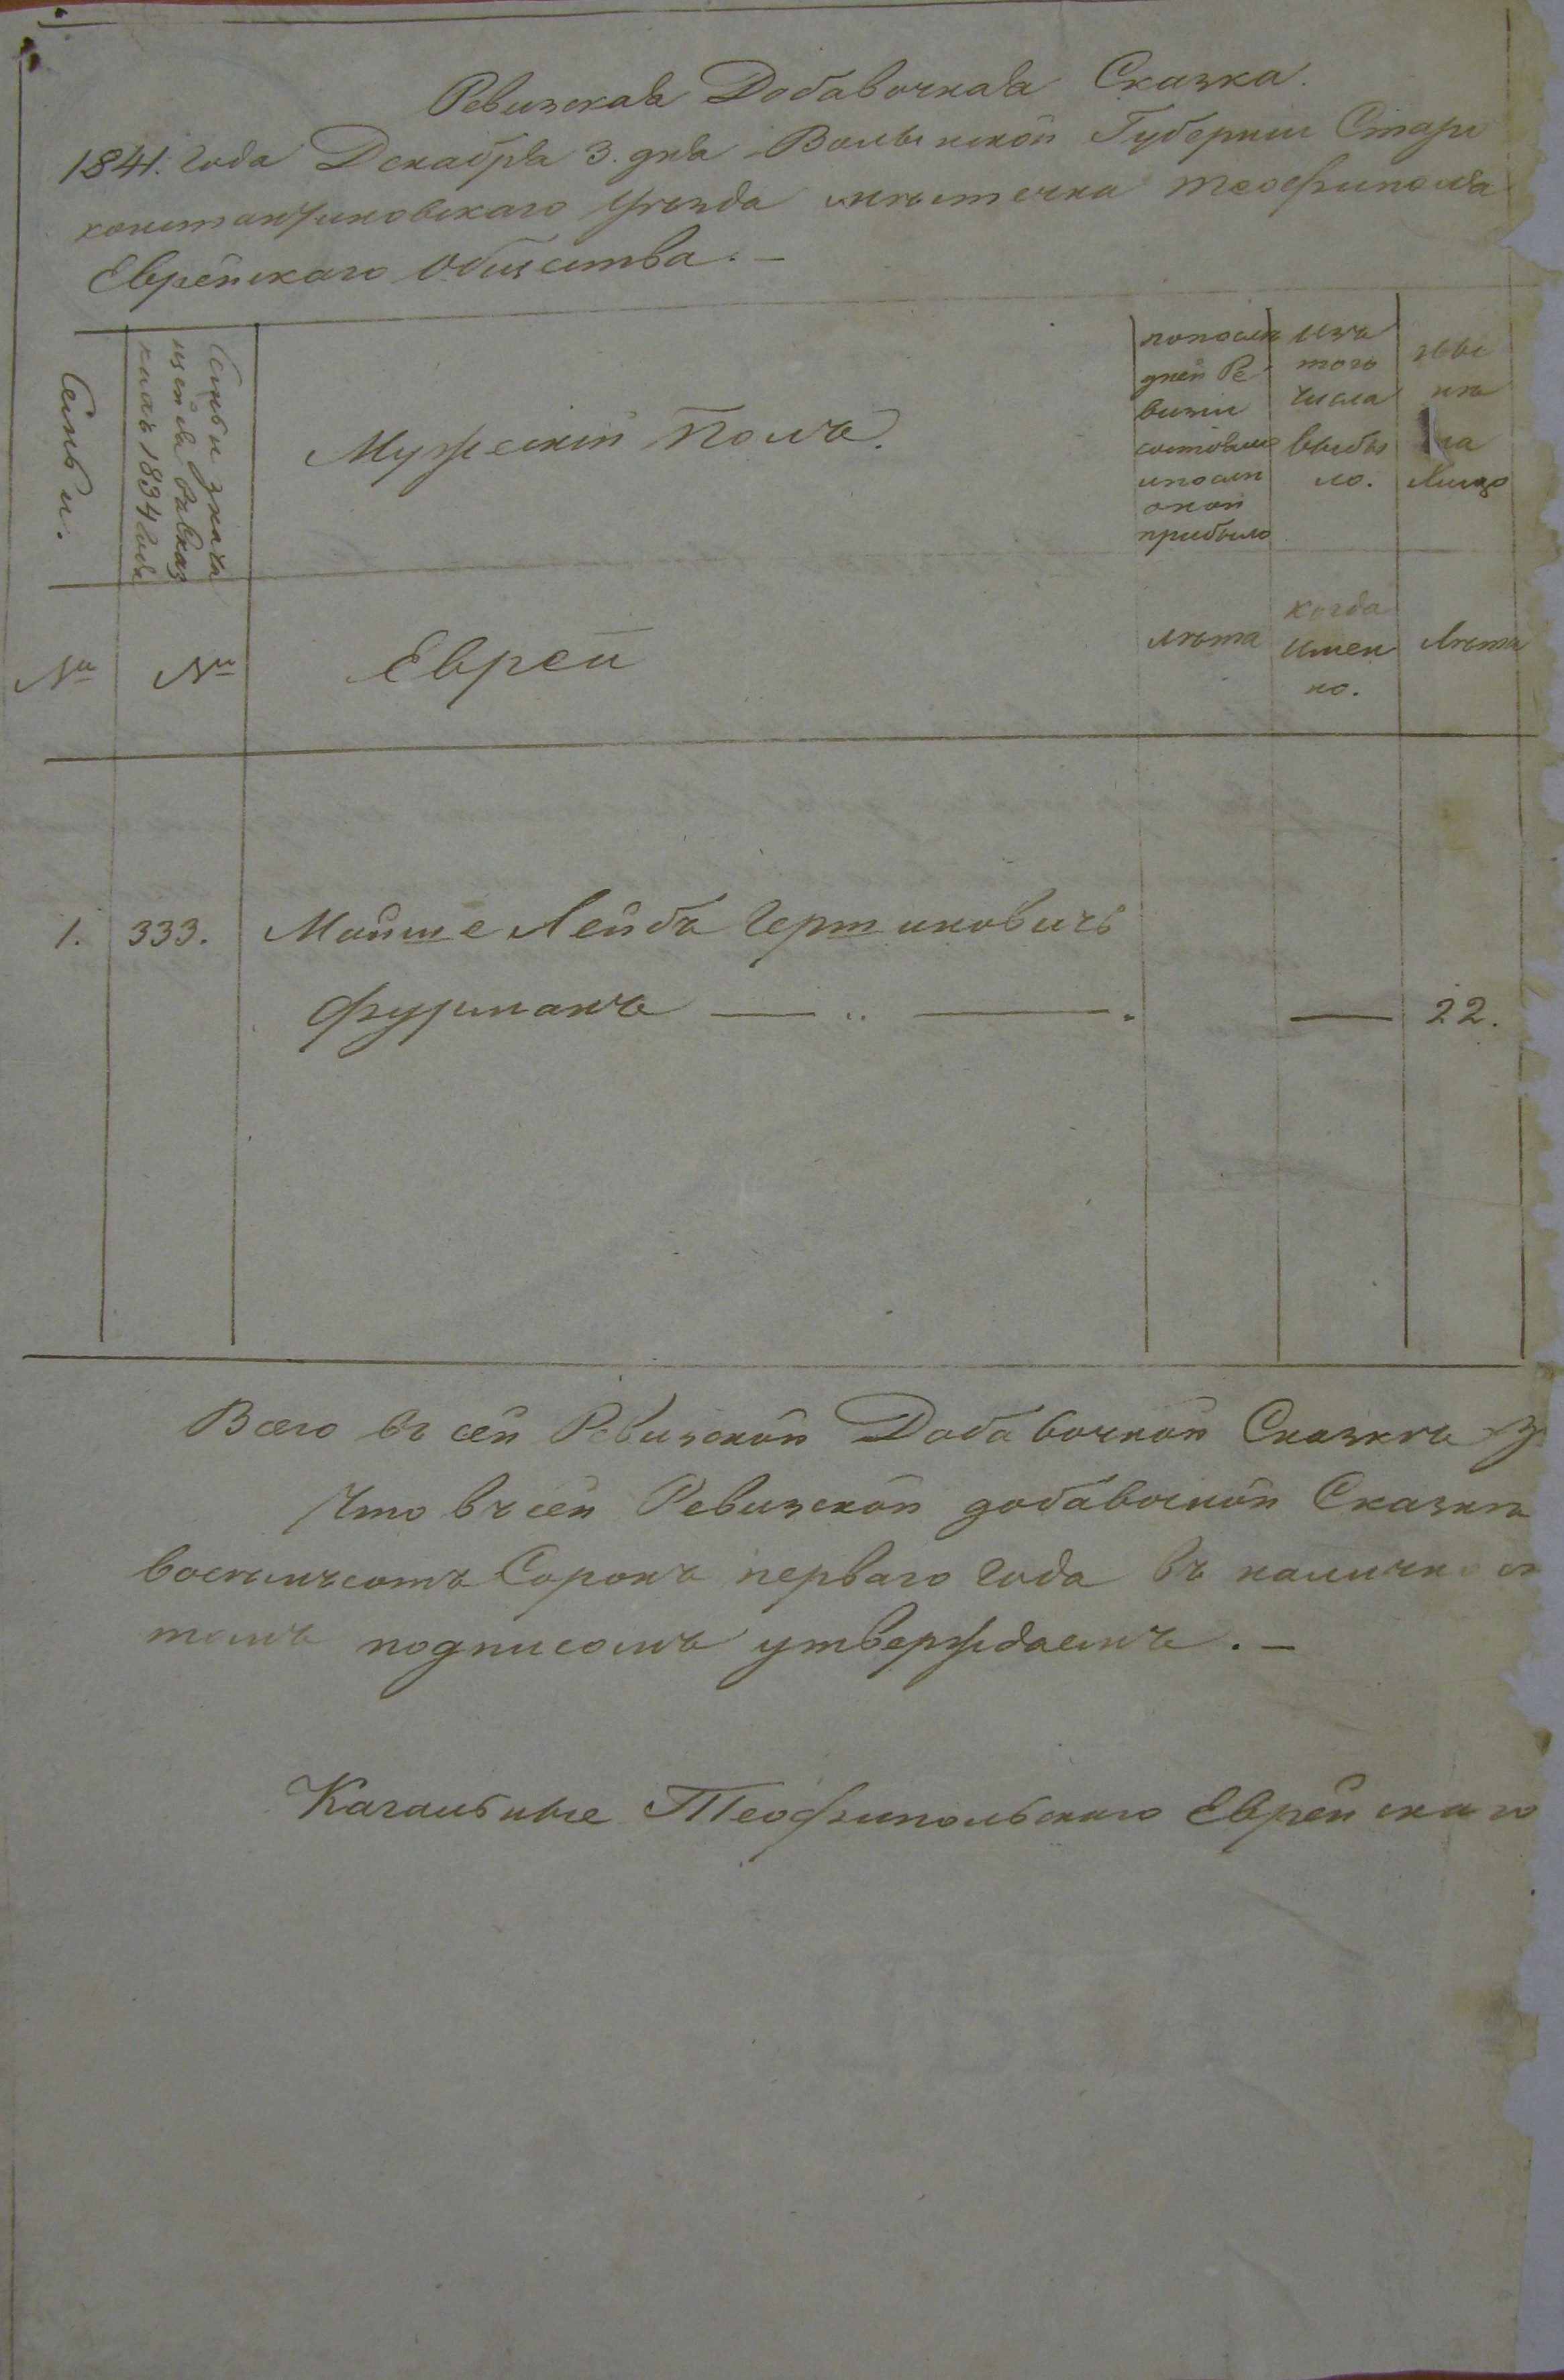 Ревизская Добавочная Сказка.
1841. года Декабря 3. дня Волынской Губернии Старо
константиновскаго Уѣзда мѣстечка Теофиполя
Еврейскаго Общества. —
Семьи.
Семьи знача
щейся въ
1834 года
Мужескій Полъ.
по послѣ
дней Ре
визіи
состояло
и послѣ
оной
прибыло
Изъ
того
числа
выбы
ло.
ны
нѣ
на
лицо
№
№
Евреи
лѣта
когда
имен
но.
Лѣта
1.
333.
Мойше Лейбъ Гершковичъ
Фурманъ — „ — .
—
22.
Всего въ сей Ревизской Добавочной Сказкѣ
Что въ сей Ревизской добавочной Сказкѣ
восемьсотъ Сорокъ перваго года въ налично
томъ подписомъ утверждаемъ. —
Кагальные Теофипольскаго Еврейскаго